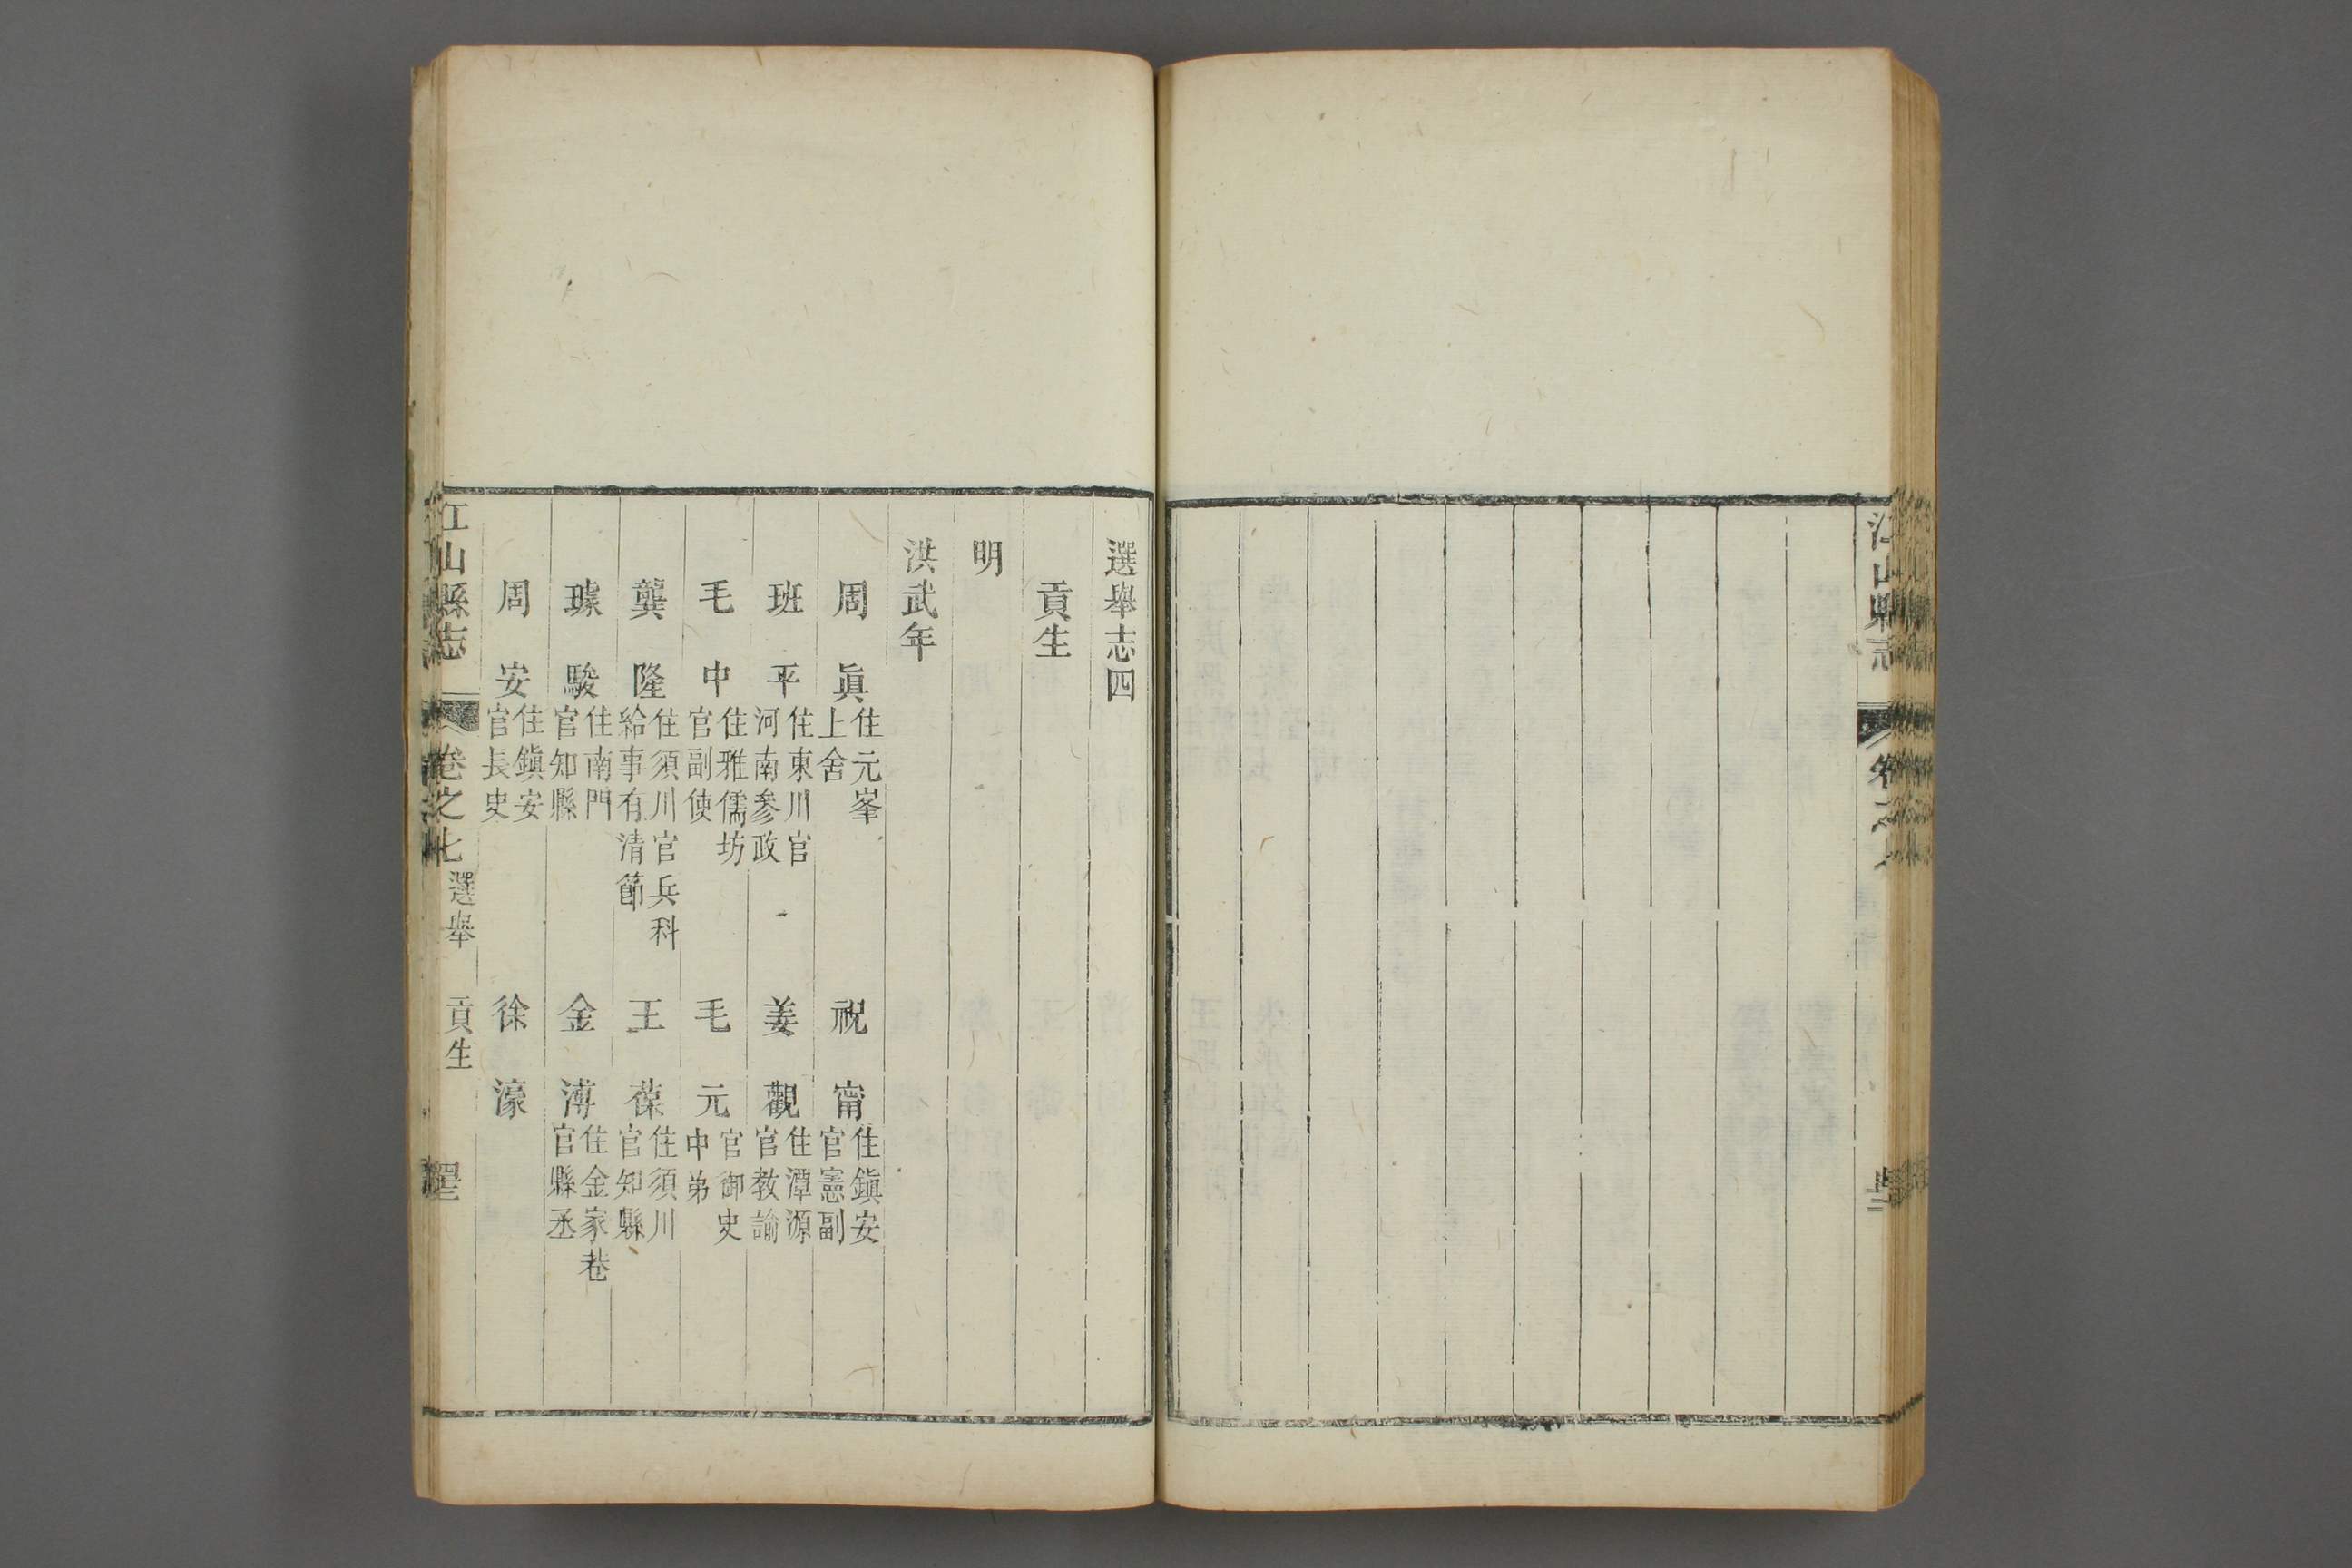 選舉志四
貢生
明
洪武年
周 眞 住元峯上舍 祝 甯 住鎭安官憲副
班 平 住東川官河南參政 姜 觀 住潭源官教諭
毛 中 住雅儒坊官副使 毛 元 官御史中弟
龔 隆 住須川官兵科給事有清節 王 葆 住須川官知縣
璩 駿 住南門官知縣 金 溥 住金家巷官縣丞
周 安 住鎭安官長史 徐 濠
江山縣志 卷之七 選舉 貢生